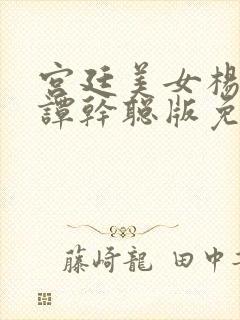 宮廷美女楊
譚幹聰版免
藤崎龍 田中